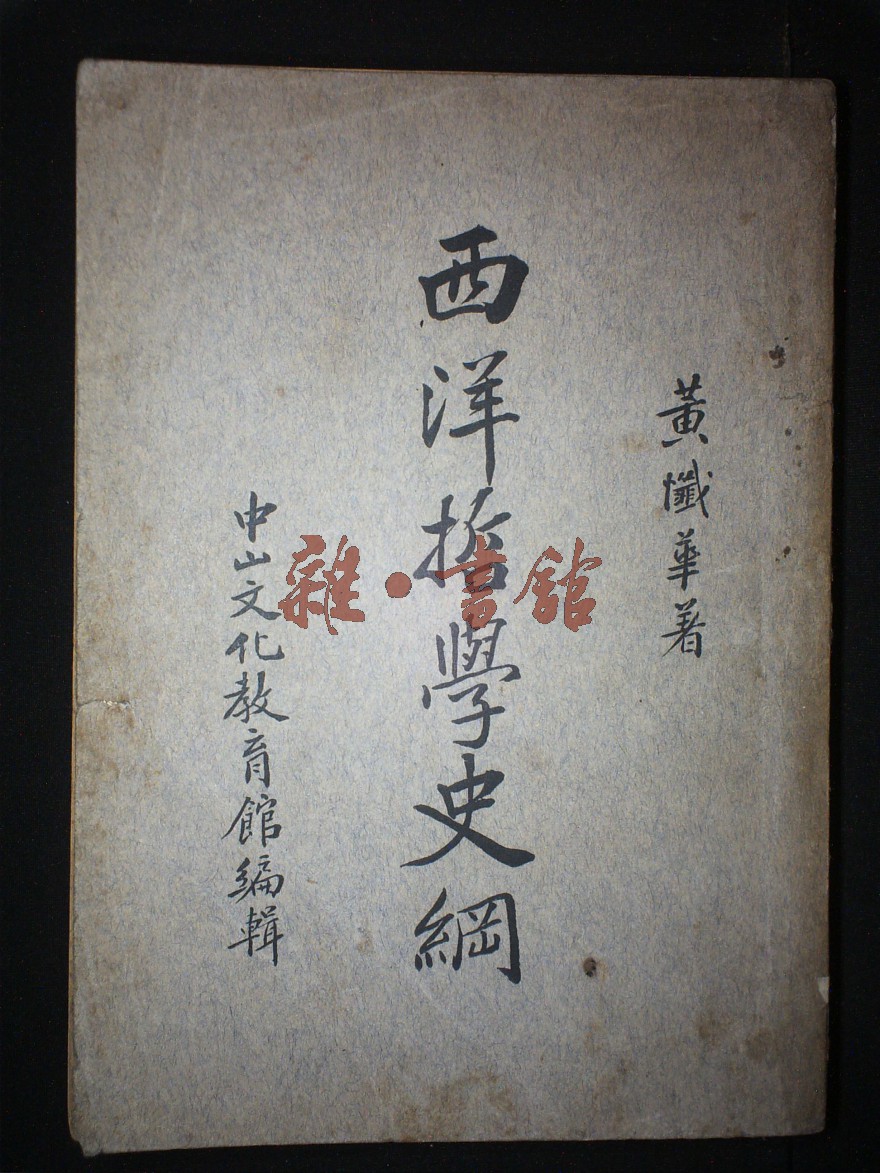 黃懺華著
西洋哲學史綱
中山文化教育館編輯
雜·書館